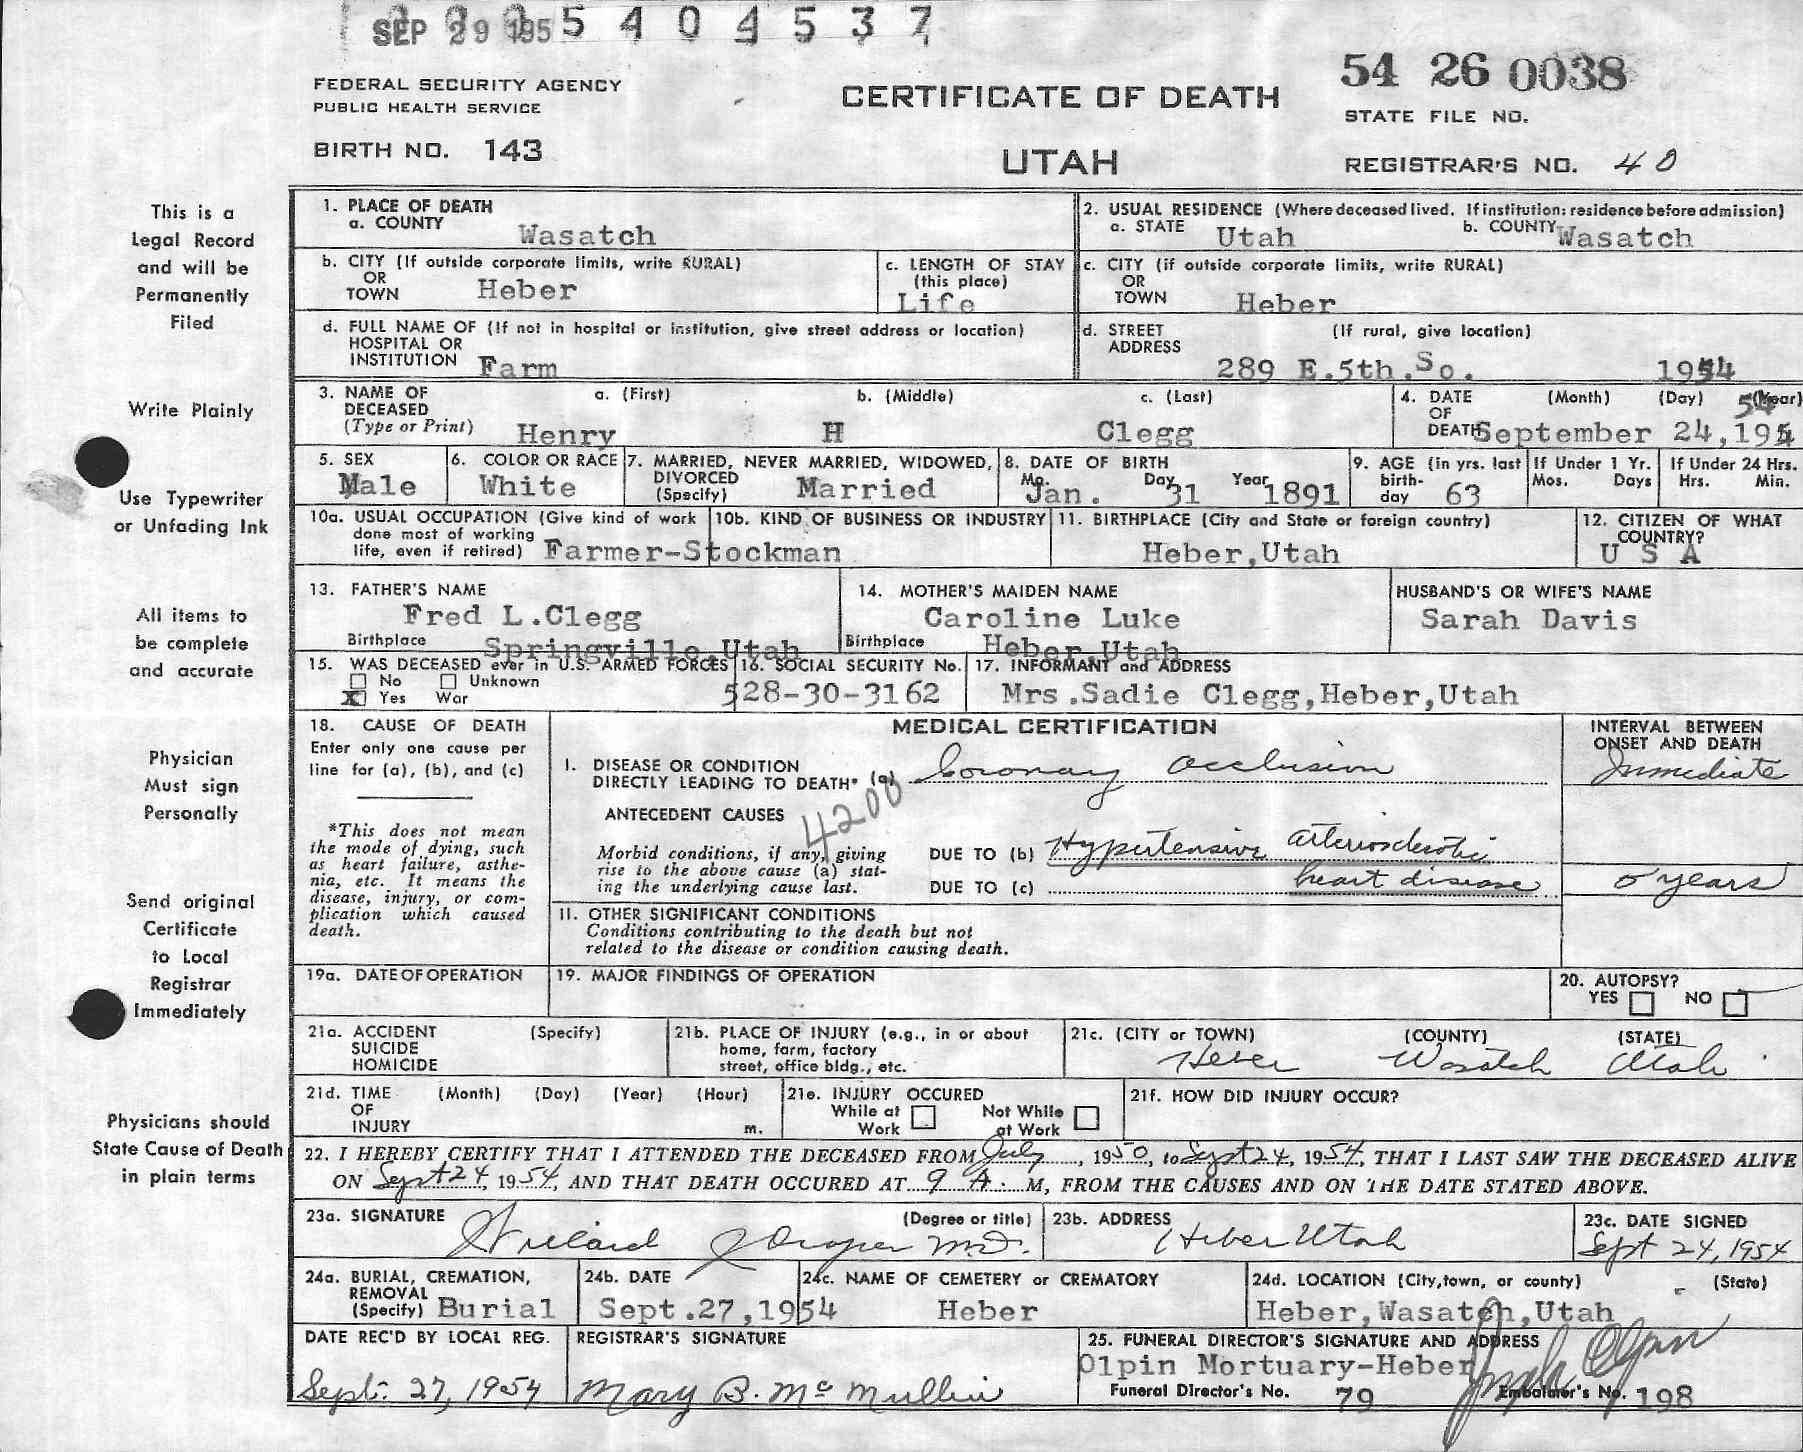 SEP 29 195 5 4 0 4 5 3 7
54 26 0038
FEDERAL SECURITY AGENCY
PUBLIC HEALTH SERVICE
CERTIFICATE OF DEATH
STATE FILE NO.
BIRTH NO. 143
UTAH
REGISTRAR'S NO. 40
This is a
Legal Record
and will be
Permanently
Filed
Write Plainly
Use Typewriter
or Unfading Ink
All items to
be complete
and accurate
Physician
Must sign
Personally
Send original
Certificate
to Local
Registrar
Immediately
Physicians should
State Cause of Death
in plain terms
1. PLACE OF DEATH
a. COUNTY Wasatch
2. USUAL RESIDENCE (Where deceased lived. If institution: residence before admission)
a. STATE Utah b. COUNTY Wasatch
b. CITY (If outside corporate limits, write RURAL)
OR
TOWN Heber
c. LENGTH OF STAY
(this place)
Life
c. CITY (if outside corporate limits, write RURAL)
OR
TOWN Heber
d. FULL NAME OF (If not in hospital or institution, give street address or location)
HOSPITAL OR
INSTITUTION Farm
d. STREET (If rural, give location)
ADDRESS
289 E.5th.So. 1954
3. NAME OF a. (First) b. (Middle) c. (Last)
DECEASED
(Type or Print) Henry H Clegg
4. DATE (Month) (Day) (Year)
OF 54
DEATH September 24,195
5. SEX
Male
6. COLOR OR RACE
White
7. MARRIED, NEVER MARRIED, WIDOWED,
DIVORCED
(Specify) Married
8. DATE OF BIRTH
Mo. Day Year
Jan. 31 1891
9. AGE (in yrs. last
birth-
day 63
If Under 1 Yr.
Mos. Days
If Under 24 Hrs.
Hrs. Min.
10a. USUAL OCCUPATION (Give kind of work
done most of working
life, even if retired) Farmer-Stockman
10b. KIND OF BUSINESS OR INDUSTRY
11. BIRTHPLACE (City and State or foreign country)
Heber,Utah
12. CITIZEN OF WHAT
COUNTRY?
U S A
13. FATHER'S NAME
Fred L.Clegg
Birthplace Springville,Utah
14. MOTHER'S MAIDEN NAME
Caroline Luke
Birthplace Heber,Utah
HUSBAND'S OR WIFE'S NAME
Sarah Davis
15. WAS DECEASED ever in U.S. ARMED FORCES
No Unknown
X Yes War
16. SOCIAL SECURITY No.
528-30-3162
17. INFORMANT and ADDRESS
Mrs.Sadie Clegg,Heber,Utah
18. CAUSE OF DEATH
Enter only one cause per
line for (a), (b), and (c)
*This does not mean
the mode of dying, such
as heart failure, asthe-
nia, etc. It means the
disease, injury, or com-
plication which caused
death.
MEDICAL CERTIFICATION
INTERVAL BETWEEN
ONSET AND DEATH
I. DISEASE OR CONDITION
DIRECTLY LEADING TO DEATH* (a) Coronary occlusion Immediate
ANTECEDENT CAUSES 4200
Morbid conditions, if any, giving
rise to the above cause (a) stat-
ing the underlying cause last.
DUE TO (b) Hypertensive arteriosclerotic
DUE TO (c) heart disease years
II. OTHER SIGNIFICANT CONDITIONS
Conditions contributing to the death but not
related to the disease or condition causing death.
19a. DATE OF OPERATION
19. MAJOR FINDINGS OF OPERATION
20. AUTOPSY?
YES NO
21a. ACCIDENT (Specify)
SUICIDE
HOMICIDE
21b. PLACE OF INJURY (e.g., in or about
home, farm, factory
street, office bldg., etc.
21c. (CITY or TOWN) (COUNTY) (STATE)
Heber Wasatch Utah
21d. TIME (Month) (Day) (Year) (Hour)
OF
INJURY m.
21e. INJURY OCCURED
While at Work Not While at Work
21f. HOW DID INJURY OCCUR?
22. I HEREBY CERTIFY THAT I ATTENDED THE DECEASED FROM July, 1950, to Sept 24, 1954, THAT I LAST SAW THE DECEASED ALIVE
ON Sept 24, 1954, AND THAT DEATH OCCURED AT 9 A. M, FROM THE CAUSES AND ON THE DATE STATED ABOVE.
23a. SIGNATURE (Degree or title)
M.D.
23b. ADDRESS
Heber Utah
23c. DATE SIGNED
Sept 24, 1954
24a. BURIAL, CREMATION,
REMOVAL
(Specify) Burial
24b. DATE
Sept.27,1954
24c. NAME OF CEMETERY or CREMATORY
Heber
24d. LOCATION (City,town, or county) (State)
Heber,Wasatch,Utah
DATE REC'D BY LOCAL REG.
Sept. 27, 1954
REGISTRAR'S SIGNATURE
Mary B. McMullin
25. FUNERAL DIRECTOR'S SIGNATURE AND ADDRESS
Olpin Mortuary-Heber Olpin
Funeral Director's No. 79 Embalmer's No. 198